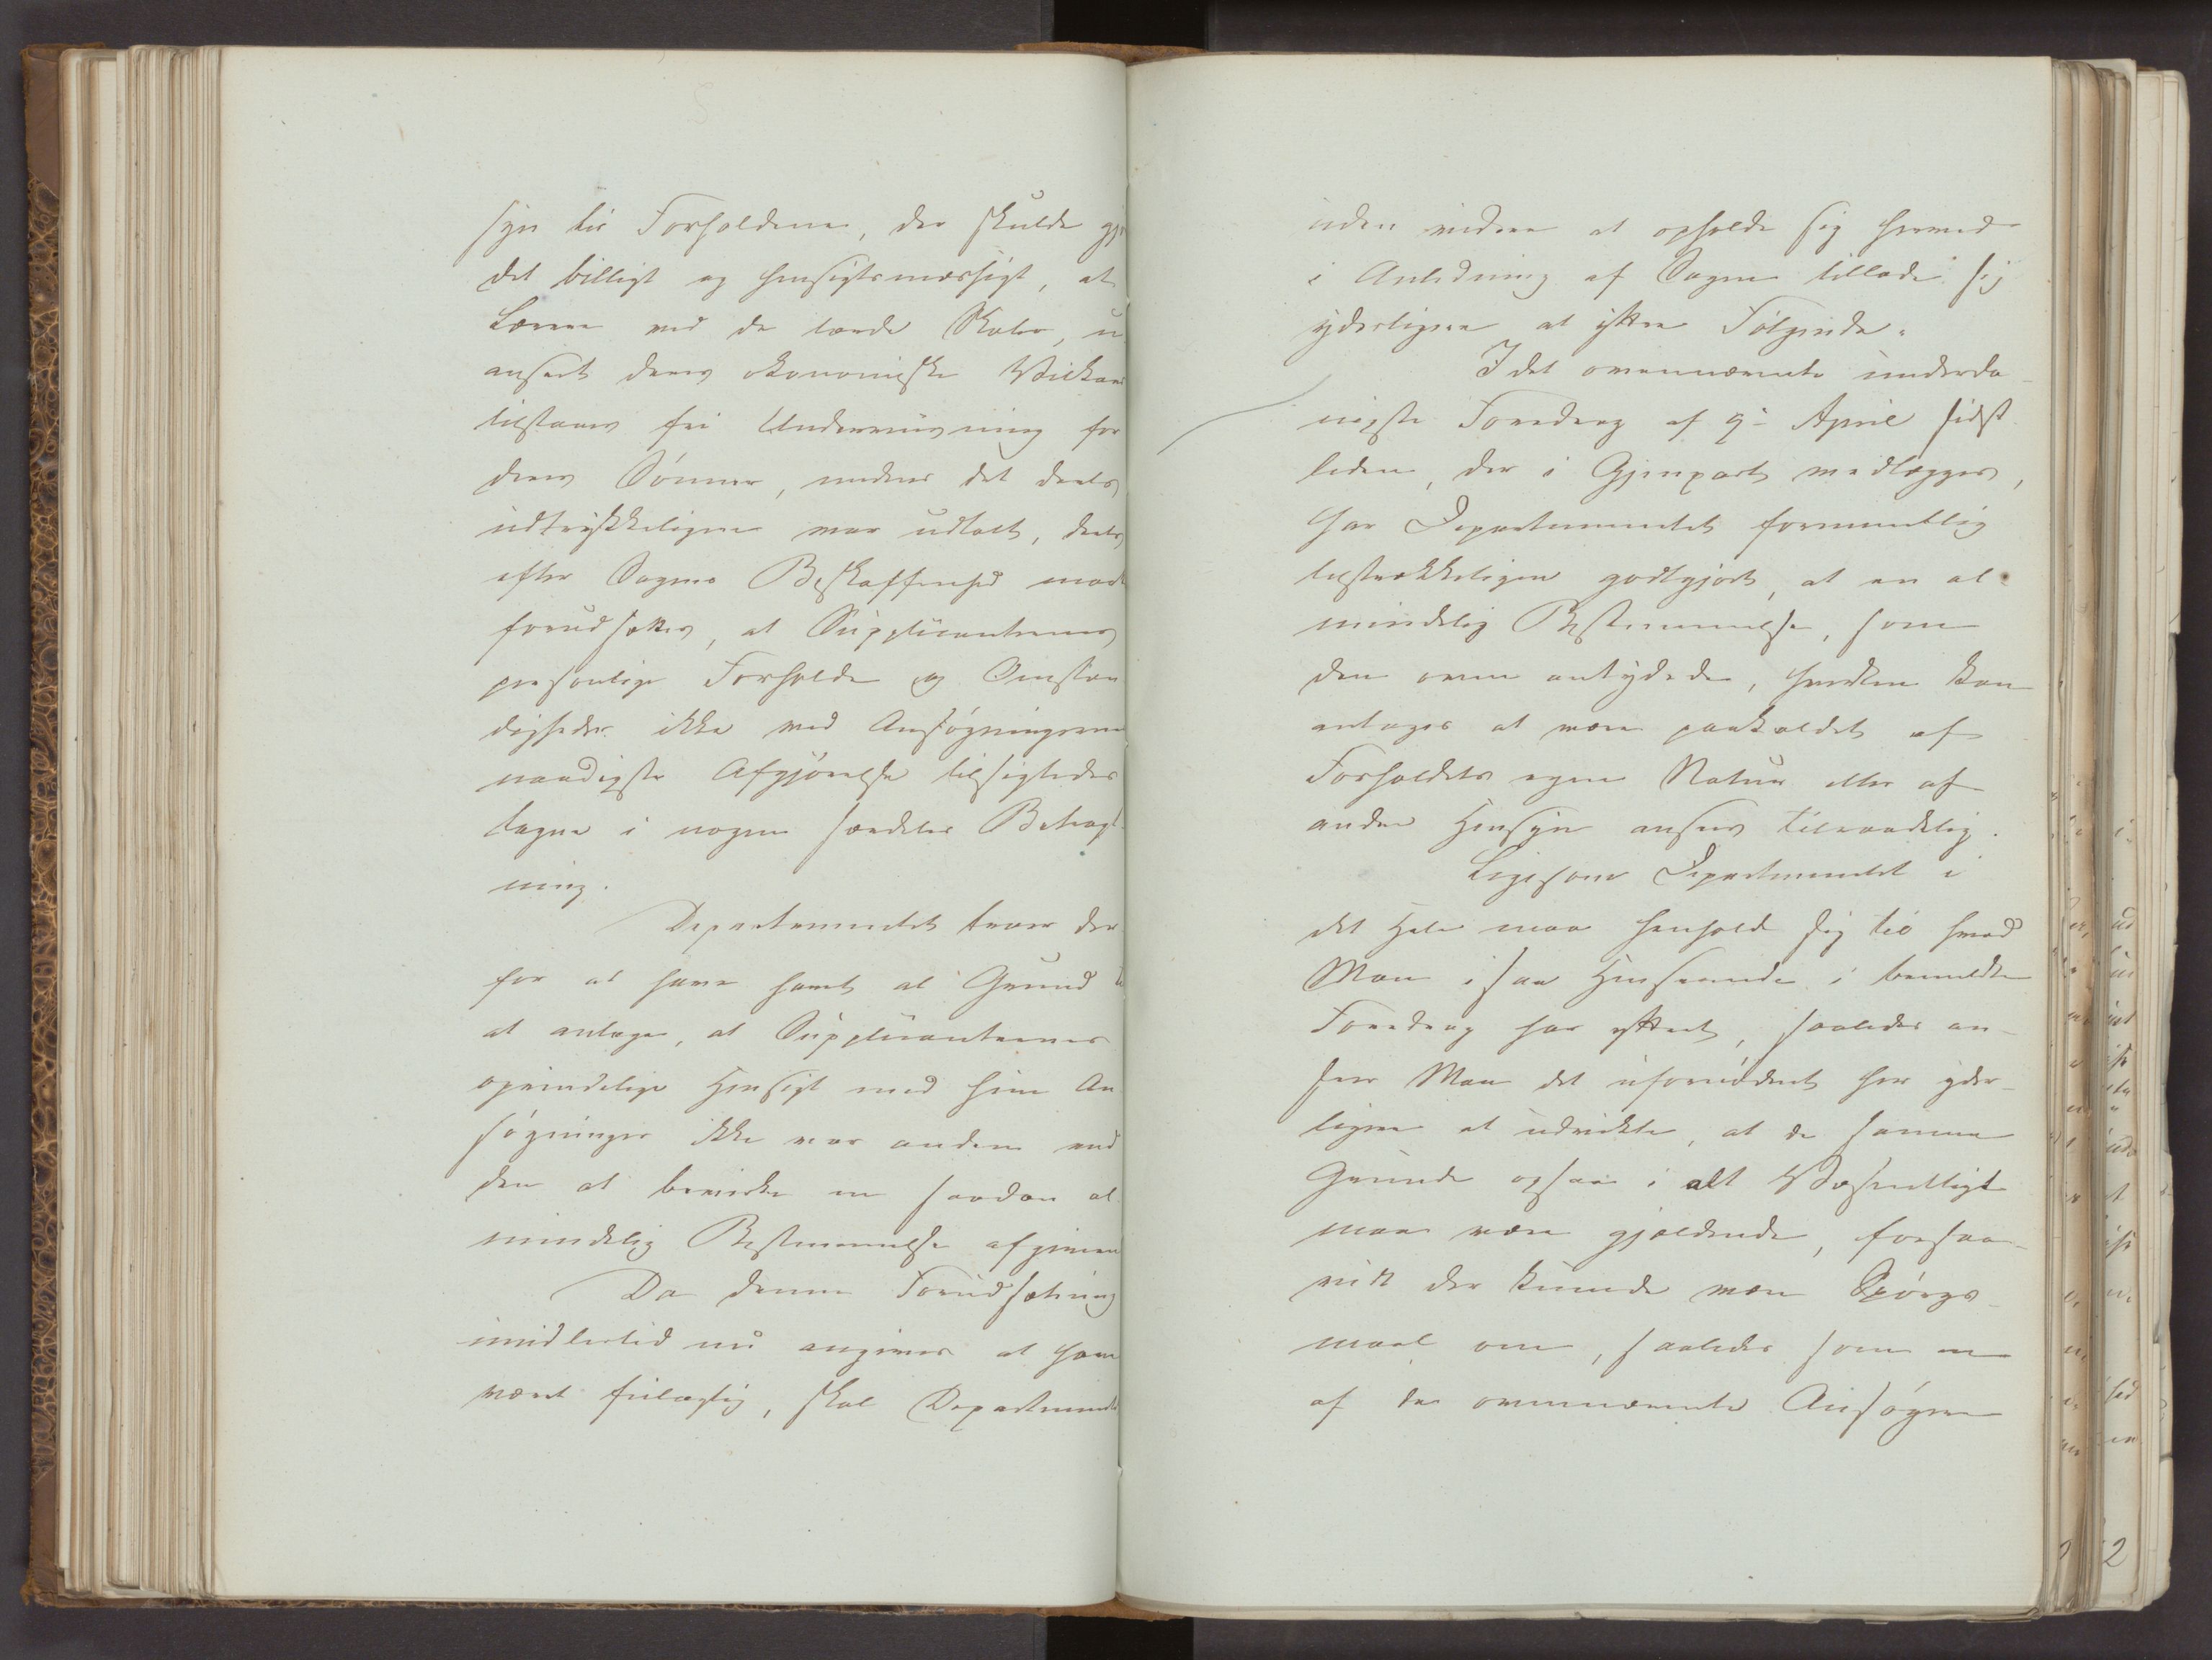 syn til Forholdene, der skulde gj
det billigt og hensigtsmæssigt, at
Lærere ved de lærde Skoler, u
anseet deres økonomiske Vilkaar
tilstaaes fri Underviisning for
deres Sönner, medens det deels
udtrykkeligen var udtalt, deels
efter Sagens Beskaffenhed maat
forudsættes, at Supplicanternes
personlige Forholde og Omstæn
digheder ikke ved Ansögningernes
naadigste Afgjörelse tilsigtedes
tagne i nogen særdeles Betragt
ning.
Departementet troer der
for at have havt al Grund ti
at antage, at Supplicanternes
oprindelige Hensigt med hine An
sögninger ikke var anden end
den at bevirke en saadan al
mindelig Bestemmelse afgiven
Da denne Forudsætning
imidlertid nu angives at have
været feilagtig, skal Departementet
uden videre at opholde sig herved
i Anledning af Sagen tillade sig
yderligere at yttre Fölgende.
I det ovennævnte underda-
nigste Foredrag af 9de April sidst
leden, der i Gjenpart vedlægges,
har Departementet formeentlig
tilstrækkeligen godtgjort, at en al
mindelig Bestemmelse, som
den oven antydede, hverken kan
antages at være paakaldet af
Forholdets egen Natur eller af
andre Hensyn ansees tilraadelig.
Ligesom Departementet i
det Hele maa henholde sig til hvad
Man i saa Henseende i bemeldte
Foredrag har yttret, saaledes an-
seer Man det ufornödent her yder-
ligere at udvikle, at de samme
Grunde ogsaa i alt Væsentligt
maa være gjældende, forsaa-
vidt der kunde være Spörgs-
maal om, saaledes som en
af de ovennævnte Ansögere